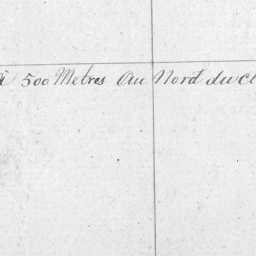 à 500 Metres Au Nord du